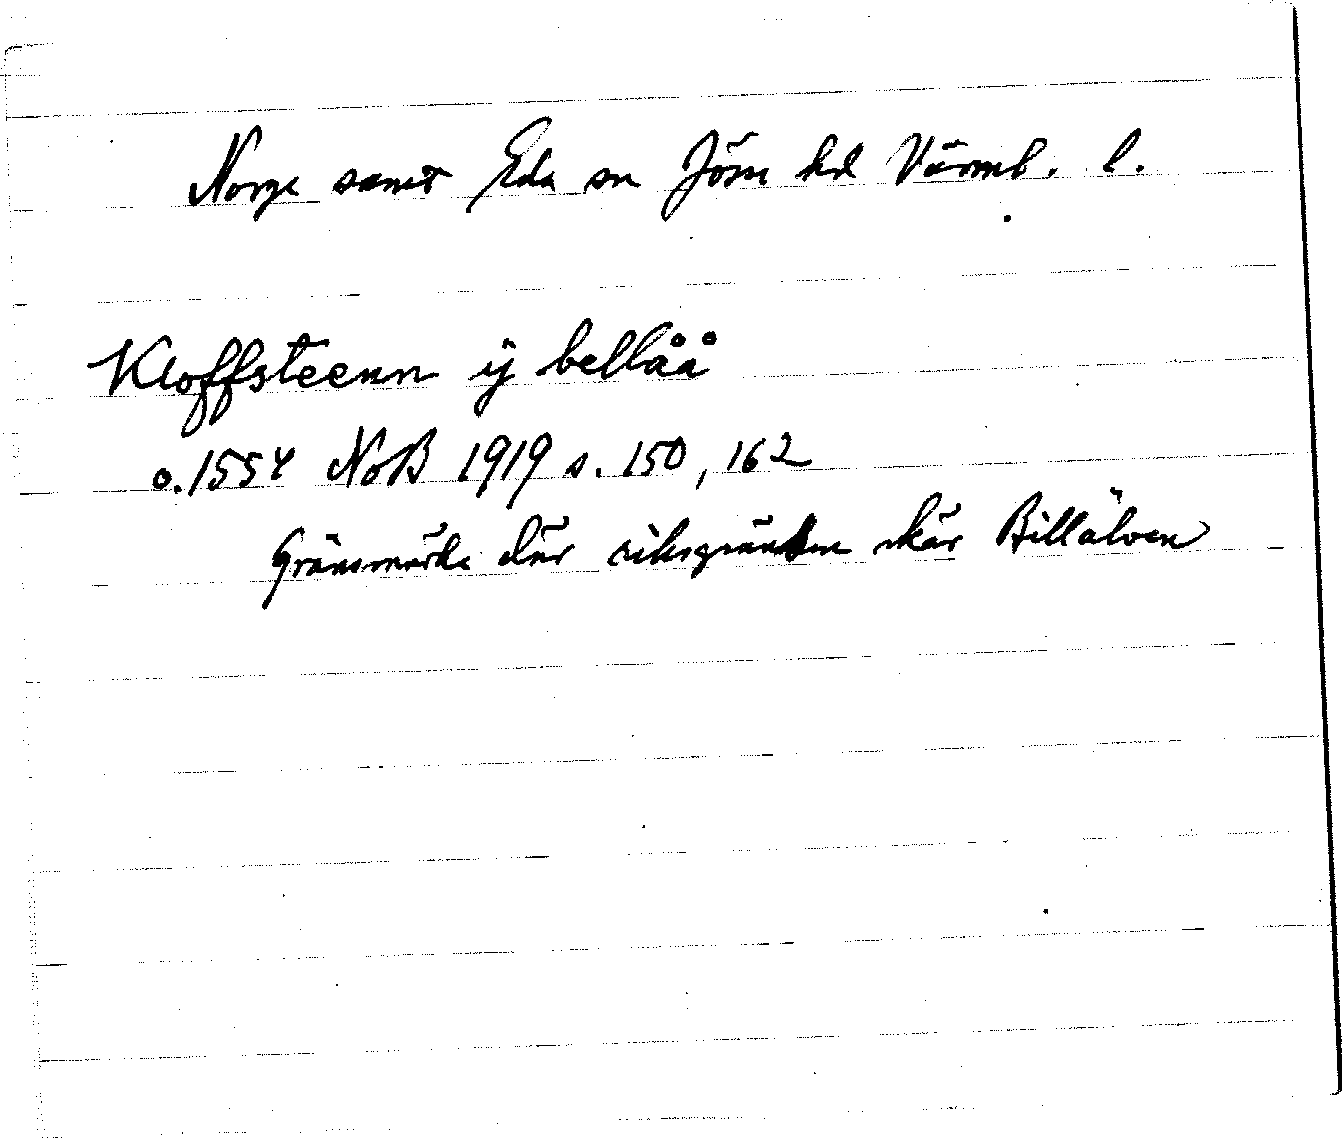 Norge samt Eda sn Jösse hd Värml. l.
Kloffsteenn ÿ bellåå
o. 1554 NoB 1919 s. 150, 162
Gränsmärke där riksgränsen skär Billälven